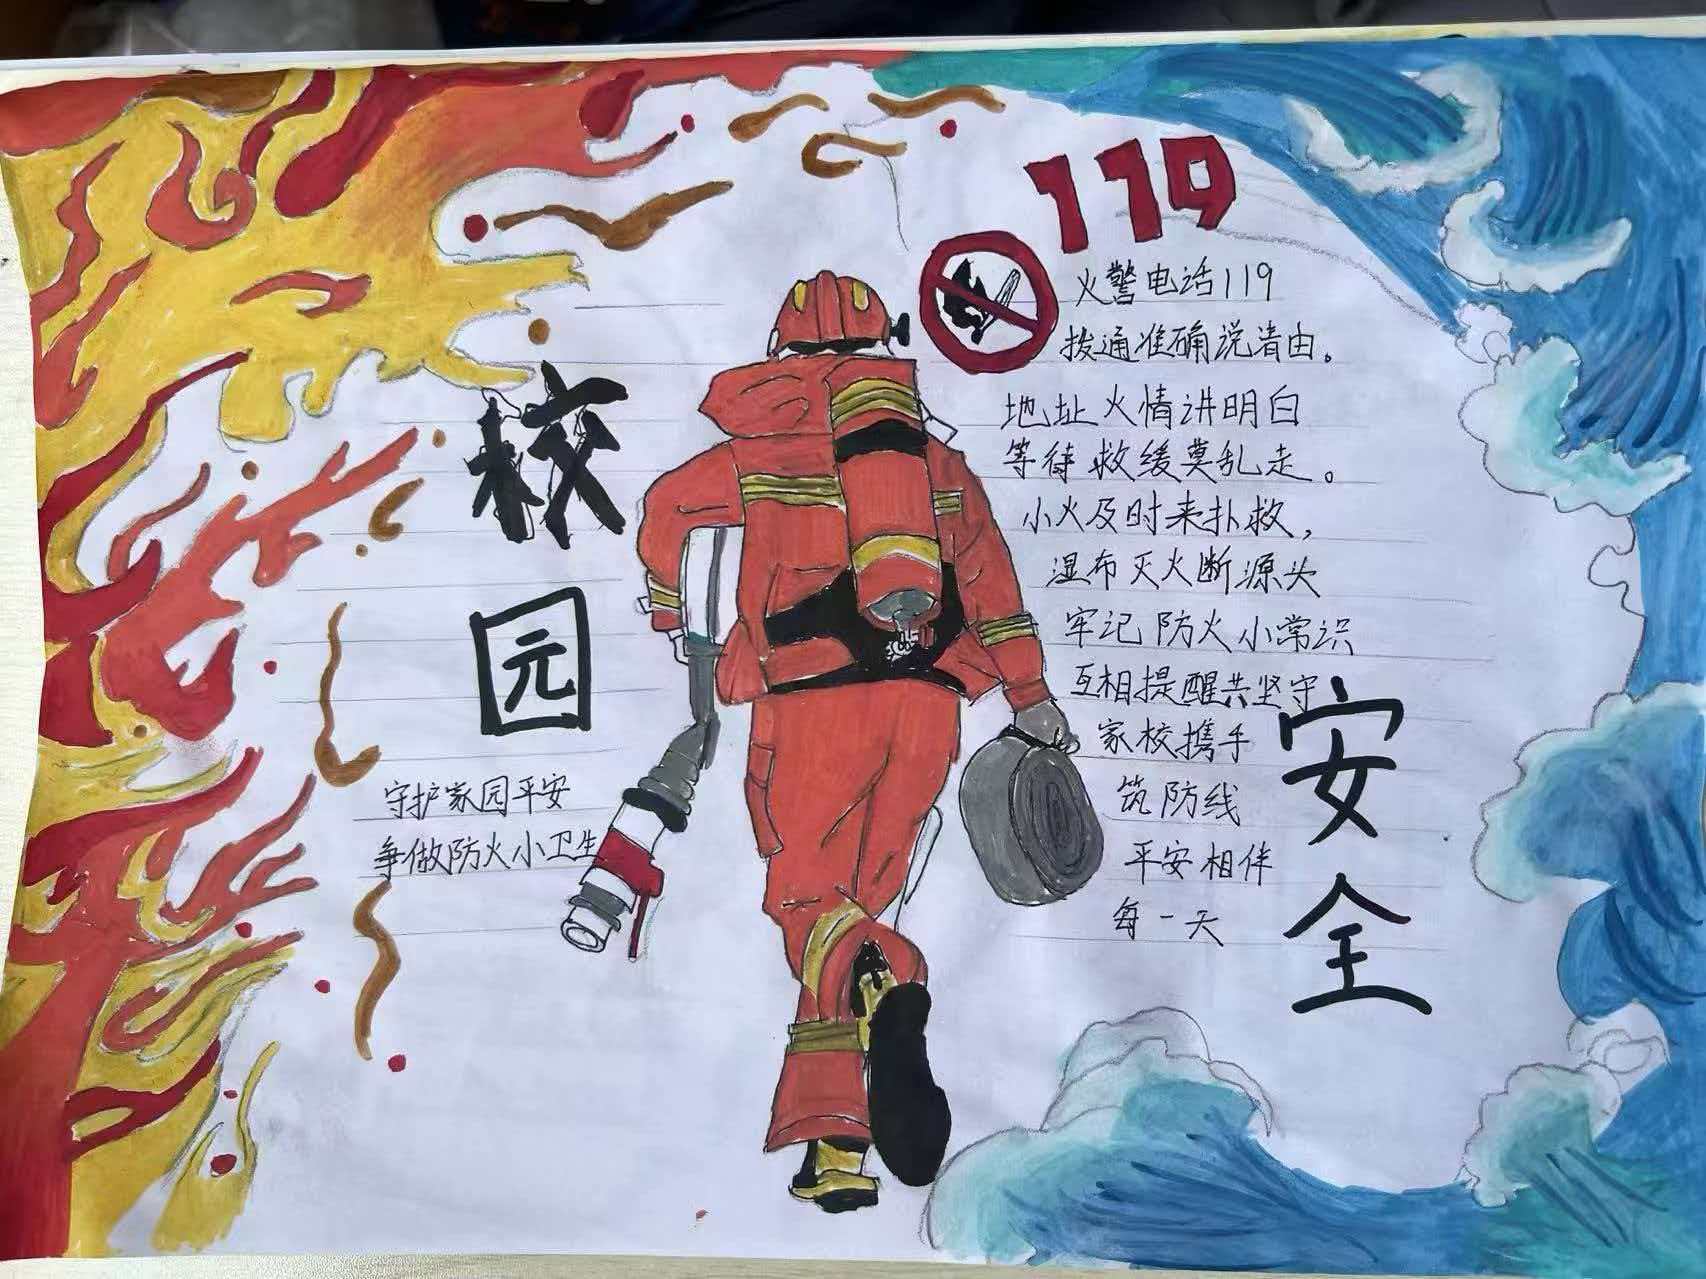 119
火警电话119
拨通准确说清由。
地址火情讲明白
等待救缓莫乱走。
小火及时来扑救，
湿布灭火断源头
牢记防火小常识
互相提醒共坚守
家校携手
筑防线
平安相伴
每一天
校园
安全
守护家园平安
争做防火小卫生